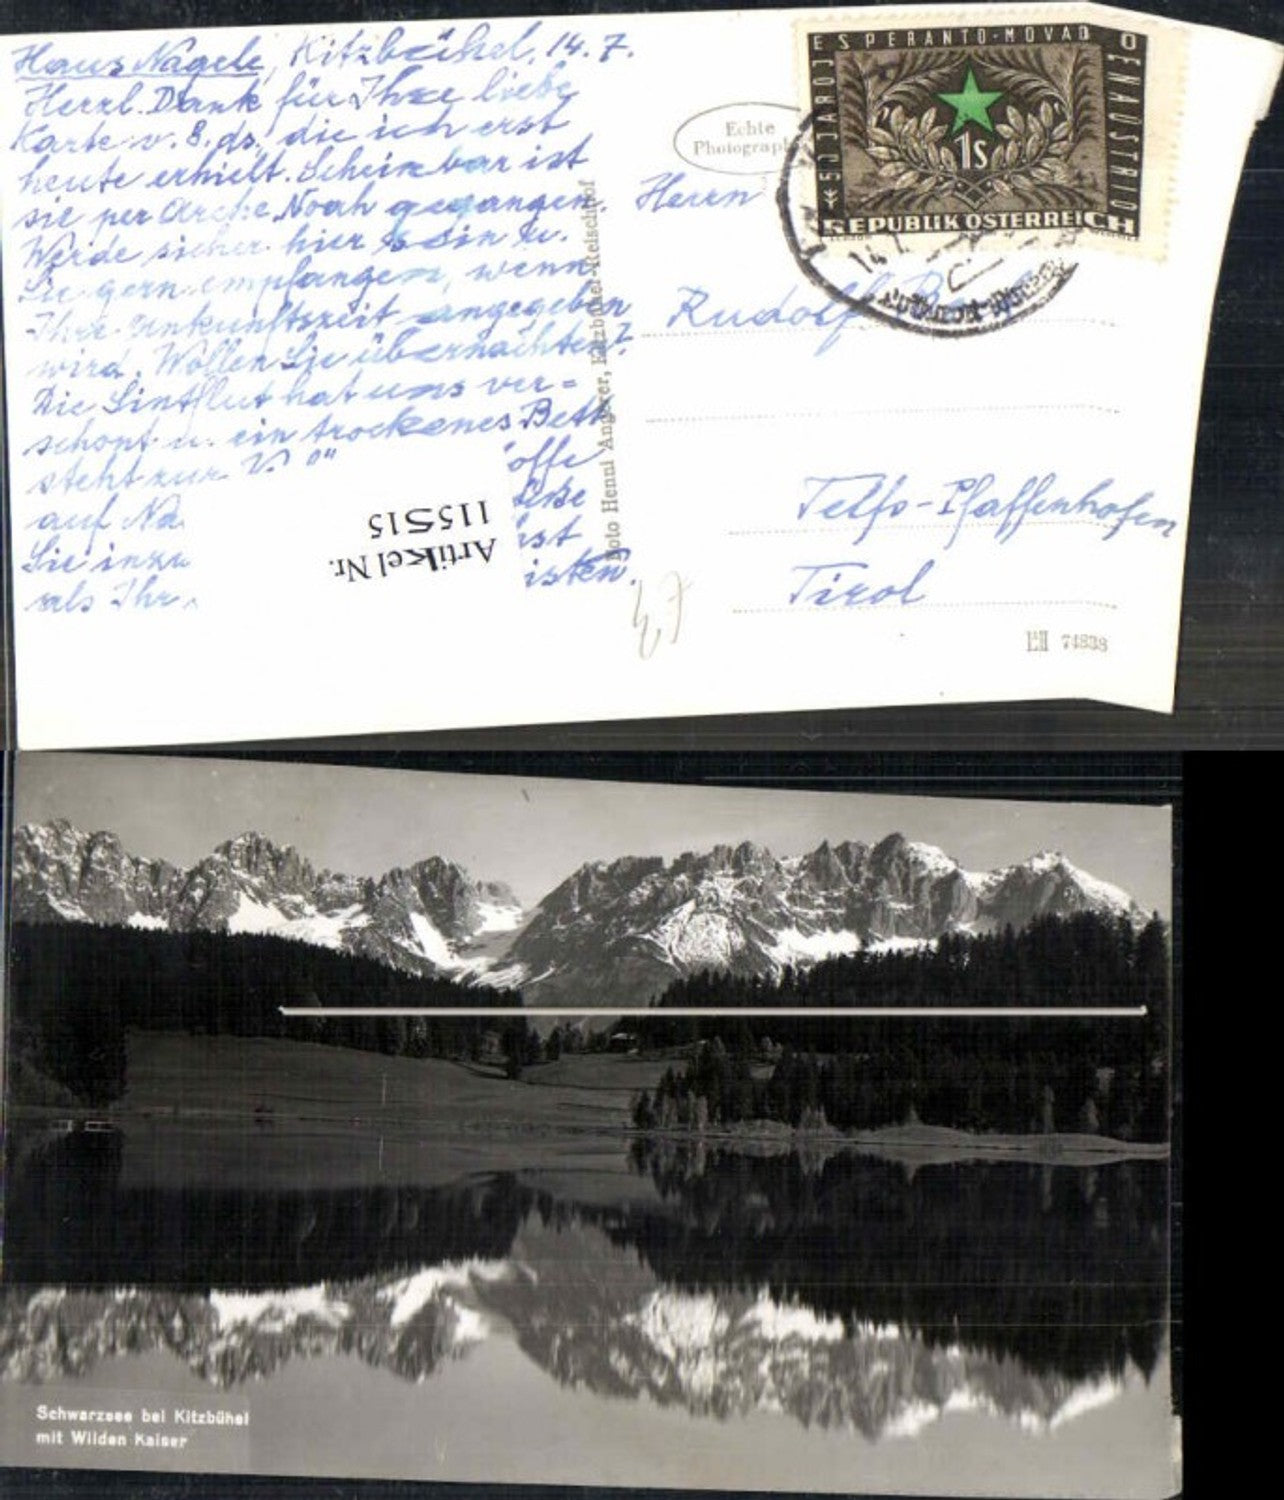 Haus Nägele, Kitzbühel, 14. 7.
Herzl. Dank für Ihre liebe
Karte v. 8. ds. die ich erst
heute erhielt. Scheinbar ist
sie per Arche Noah gegangen.
Werde sicher hier sein u.
Sie gern empfangen, wenn
Ihre Ankunftszeit angegeben
wird. Wollen Sie übernachten?
Die Sintflut hat uns ver=
schont u. ein trockenes Bett
steht zur V.
offe
auf Na
Sie inzw
ist
als Ihr
isten.
Artikel Nr.
115515
Foto Henni Angerer, Kitzbühel-Reischhof
Echte
Photograph
50 JAROJ ESPERANTO-MOVADO EN AUSTRIO
1S
REPUBLIK ÖSTERREICH
Herrn
Rudolf
Telfs-Pfaffenhofen
Tirol
74838
Schwarzsee bei Kitzbühel
mit Wilden Kaiser